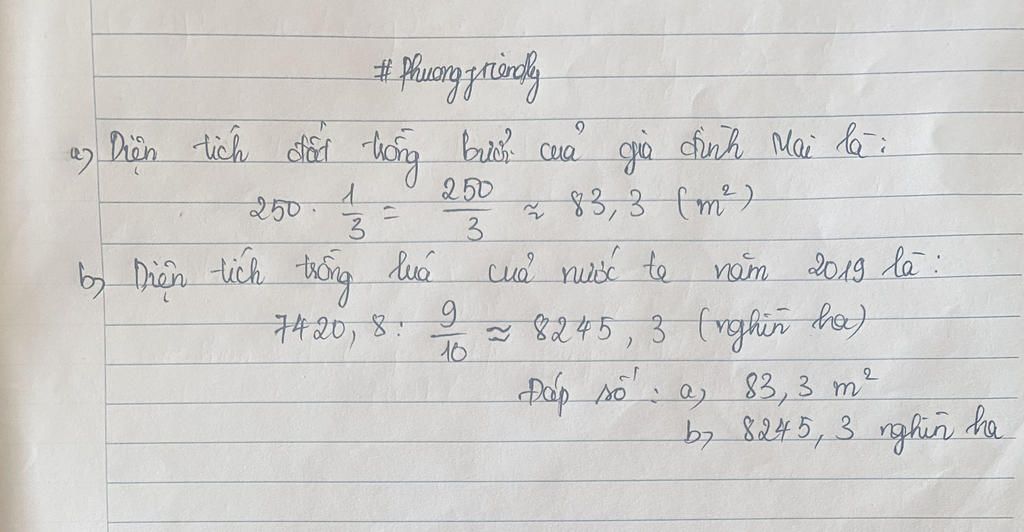 # Phuongfriendly
a) Diện tích đất trồng bưởi của gia đình Mai là:
250 . 1/3 = 250/3 ≈ 83,3 (m²)
b) Diện tích trồng lúa của nước ta năm 2019 là:
7420,8 : 9/10 ≈ 8245,3 (nghìn ha)
Đáp số : a) 83,3 m²
b) 8245,3 nghìn ha